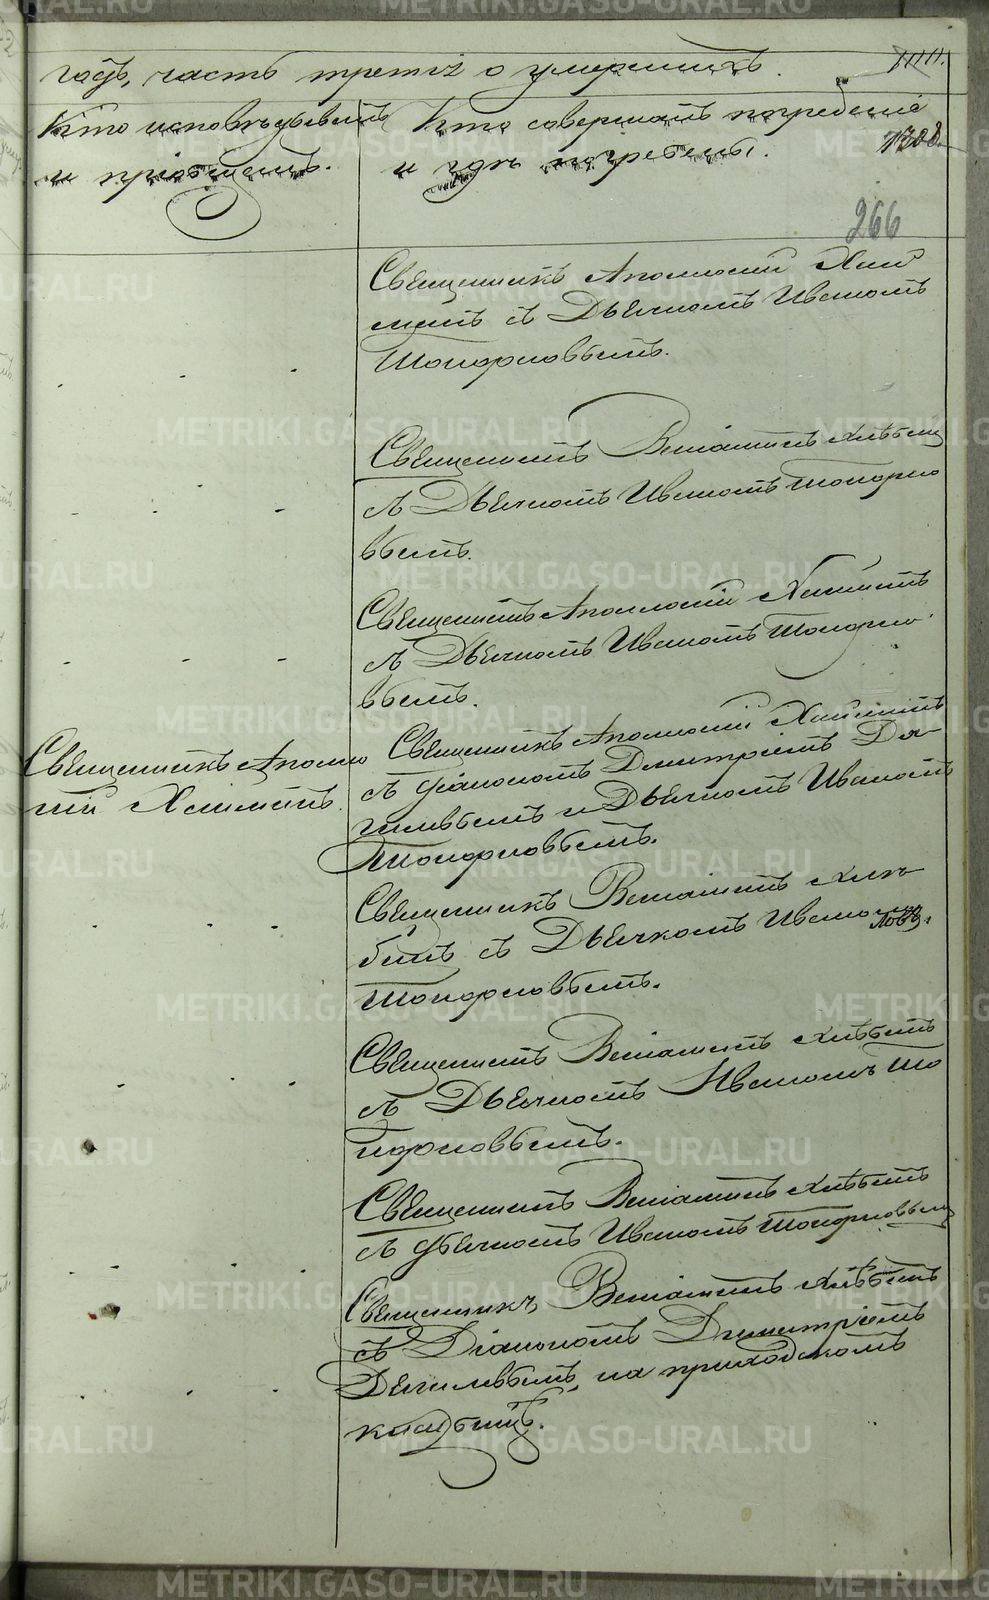 годъ, часть третія о умершихъ.
Кто исповѣдывалъ
и пріобщалъ.
Кто совершалъ погребеніе
и гдѣ погребены.
1308.
266
Священникъ Аполлоній
съ Дьячкомъ Иваномъ
Топорковымъ.
Священникъ Веніаминъ Хлѣбинъ
съ Дьячкомъ Иваномъ Топорко
вымъ.
Священникъ Аполлоній
съ Дьячкомъ Иваномъ Топорко
вымъ.
Священникъ Аполло
ній
Священникъ Аполлоній
съ Діакономъ Димитріемъ Дя-
гилевымъ и Дьячкомъ Иваномъ
Топорковымъ.
Священникъ Веніаминъ Хлѣ-
бинъ съ Дьячкомъ Иваномъ
Топорковымъ.
Священникъ Веніаминъ Хлѣбинъ
съ Дьячкомъ Иваномъ То
порковымъ.
Священникъ Веніаминъ Хлѣбинъ
съ Дьячкомъ Иваномъ Топорковымъ
Священникъ Веніаминъ Хлѣбинъ
съ Діакономъ Димитріемъ
Дягилевымъ, на приходскомъ
кладбищѣ.
METRIKI.GASO-URAL.RU